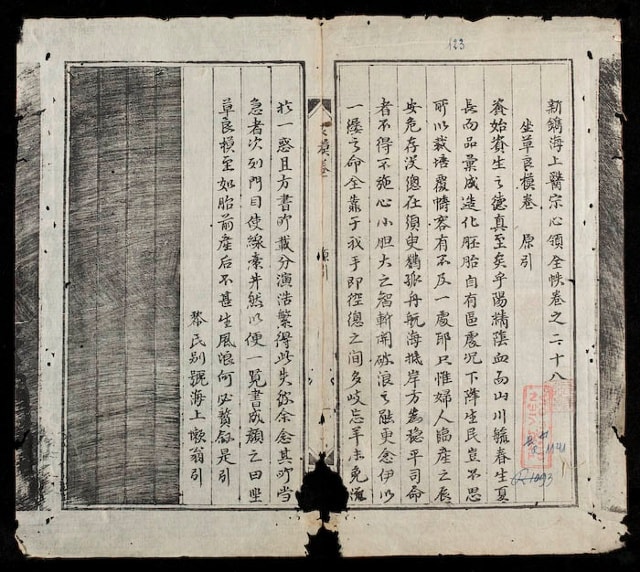 123
新鐫海上醫宗心領全帙卷之二十八
坐草良模卷 原引
資始資生之德真至矣乎陽精蔭血而山川毓春生夏
長而品彙成造化胚胎自有區處况下降生民豈不思
所以栽培覆幬容有不及一處耶只惟婦人臨產之辰
安危存没總在須臾猶孤舟航海抵岸方為穩平司命
者不得不施心小胆大之智斬開破浪之能更念伊以
一縷之命全靠于我手即徑總之間多岐忘羊未免淹
模卷 原引
於一惑且方書所載分演浩繁得此失彼余念其所當
急者次列門目使線索井然以便一覽書成顏之曰坐
草良模至如胎前產后不甚生風浪何必贅敘是引
黎氏別號海上懶翁引